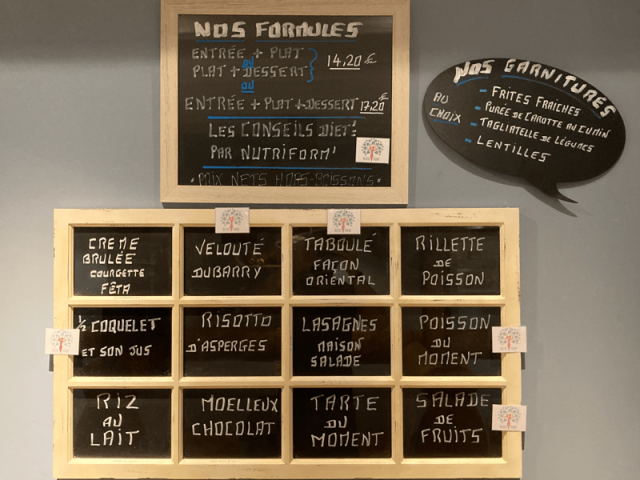 NOS FORMULES
ENTRÉE + PLAT
OU
PLAT + DESSERT
14,20 €
OU
ENTRÉE + PLAT + DESSERT 17,20 €
LES CONSEILS DIET'
PAR NUTRIFORM'
* PRIX NETS HORS-BOISSONS *
NOS GARNITURES
AU
CHOIX
- FRITES FRAÎCHES
- PURÉE DE CAROTTE AU CUMIN
- TAGLIATELLE DE LÉGUMES
- LENTILLES
CREME
BRULÉE
COURGETTE
FÊTA
VELOUTÉ
DUBARRY
TABOULÉ
FAÇON
ORIENTAL
RILLETTE
DE
POISSON
½ COQUELET
ET SON JUS
RISOTTO
D'ASPERGES
LASAGNES
MAISON
SALADE
POISSON
DU
MOMENT
RIZ
AU
LAIT
MOELLEUX
CHOCOLAT
TARTE
DU
MOMENT
SALADE
DE
FRUITS